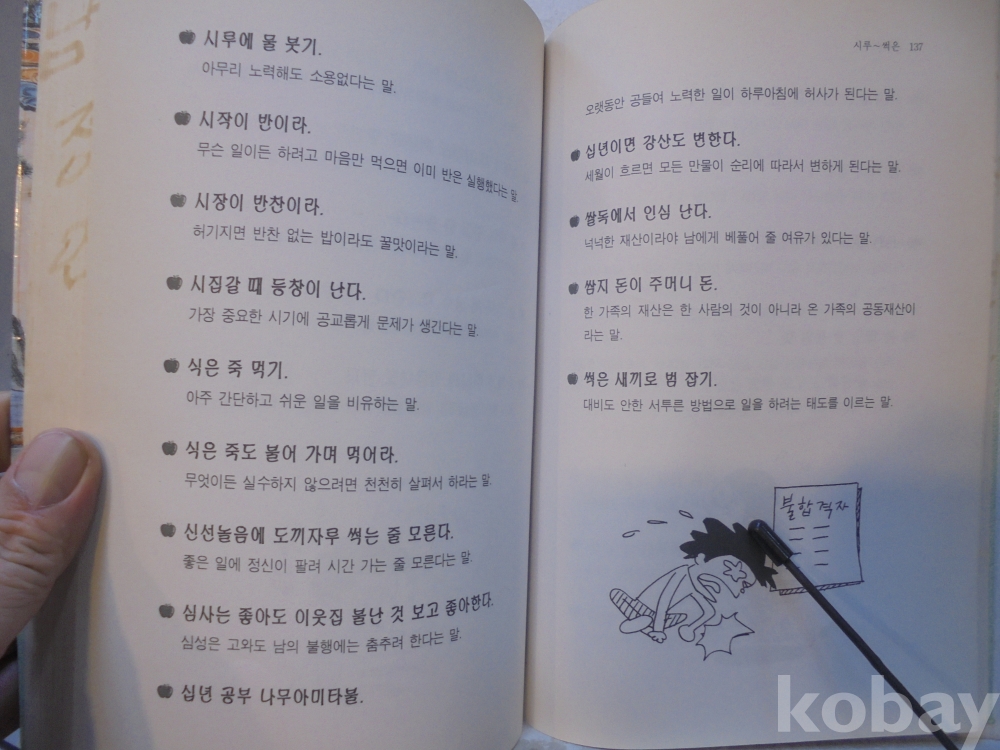 시루에 물 붓기.
아무리 노력해도 소용없다는 말.
시작이 반이라.
무슨 일이든 하려고 마음만 먹으면 이미 반은 실행했다는 말.
시장이 반찬이라.
허기지면 반찬 없는 밥이라도 꿀맛이라는 말.
시집갈 때 등창이 난다.
가장 중요한 시기에 공교롭게 문제가 생긴다는 말.
식은 죽 먹기.
아주 간단하고 쉬운 일을 비유하는 말.
식은 죽도 불어 가며 먹어라.
무엇이든 실수하지 않으려면 천천히 살펴서 하라는 말.
신선놀음에 도끼자루 썩는 줄 모른다.
좋은 일에 정신이 팔려 시간 가는 줄 모른다는 말.
심사는 좋아도 이웃집 불난 것 보고 좋아한다.
심성은 고와도 남의 불행에는 춤추려 한다는 말.
십년 공부 나무아미타불.
시루~썩은 137
오랫동안 공들여 노력한 일이 하루아침에 허사가 된다는 말.
십년이면 강산도 변한다.
세월이 흐르면 모든 만물이 순리에 따라서 변하게 된다는 말.
쌀독에서 인심 난다.
넉넉한 재산이라야 남에게 베풀어 줄 여유가 있다는 말.
쌈지 돈이 주머니 돈.
한 가족의 재산은 한 사람의 것이 아니라 온 가족의 공동재산이
라는 말.
썩은 새끼로 범 잡기.
대비도 안한 서투른 방법으로 일을 하려는 태도를 이르는 말.
불합격자
kobay